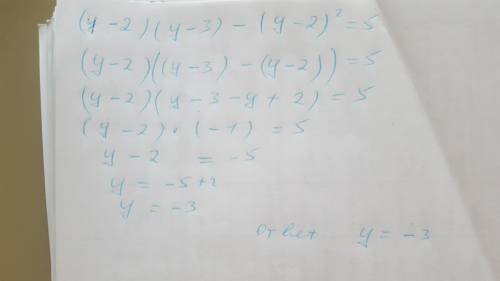 (y-2)(y-3)-(y-2)²=5
(y-2)((y-3)-(y-2))=5
(y-2)(y-3-y+2)=5
(y-2)·(-1)=5
y-2=-5
y=-5+2
y=-3
ответ y=-3